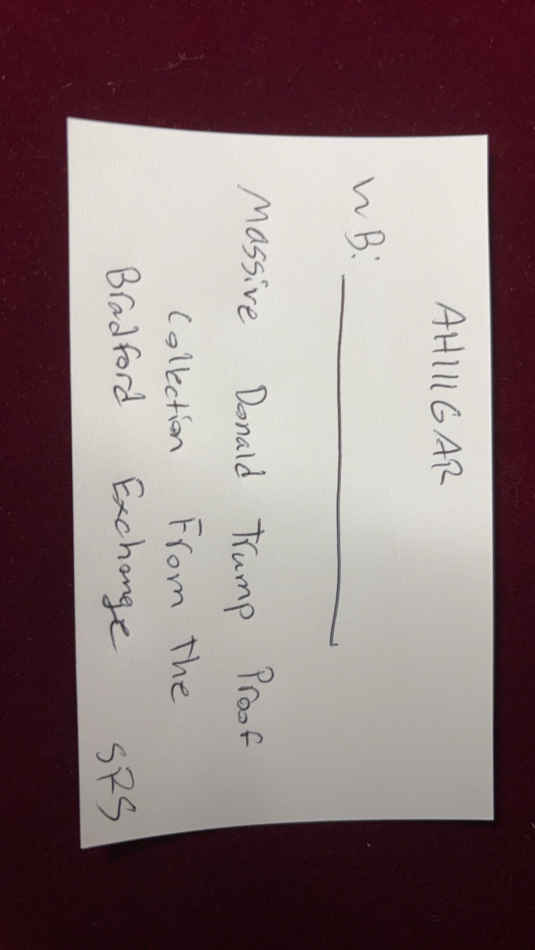 AH111GAR
WB:
Massive Donald Trump Proof
Collection From the
Bradford Exchange SRS